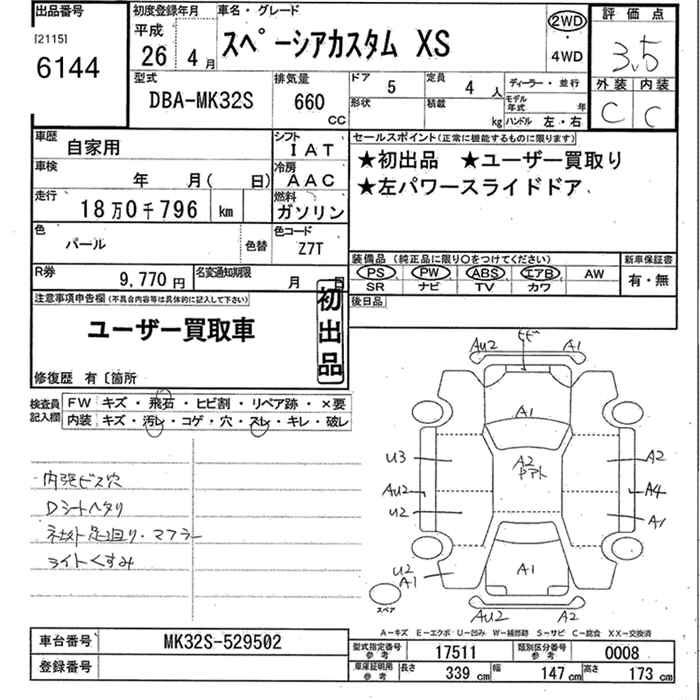 出品番号 初度登録年月 車名・グレード 2WD 評価点
[2115] 平成 スペーシアカスタム XS ・ 3.5
6144 26 4月 4WD 外装 内装
型式 排気量 ドア 5 定員 4人 ディーラー・並行 C C
DBA-MK32S 660 CC 形状 積載 kg モデル年式 年
ハンドル 左・右
車歴 自家用 シフト IAT セールスポイント(正常に機能するものに限ります)
車検 年 月( 日) 冷房 AAC ★初出品 ★ユーザー買取り
走行 18万0千796 km 燃料 ガソリン ★左パワースライドドア
色 パール 色替 色コード Z7T
装備品(純正品に限り○をつけてください) 新車保証書
R券 9,770円 名変通知期限 月 日 PS PW ABS エアB AW 有・無
SR ナビ TV カワ
注意事項申告欄(不具合内容等は具体的に記入して下さい) 初出品 後日品
ユーザー買取車
修復歴 有〔箇所
検査員記入欄 FW キズ・飛石・ヒビ割・リペア跡・×要
内装 キズ・汚レ・コゲ・穴・スレ・キレ・破レ
内張ビス穴
Dシートヘタリ
足回り・マフラー
ライトくすみ
AU2 A1
A1
U3 A2 A2
AU2 A4
U2 A1
U2 A1 A1
スペア AU2 A2
A-キズ E-エクボ U-凹み W-補修跡 S-サビ C-腐食 XX-交換済
車台番号 MK32S-529502 型式指定番号 参考 17511 類別区分番号 参考 0008
登録番号 車庫証明用 参考 長さ 339cm 幅 147cm 高さ 173cm